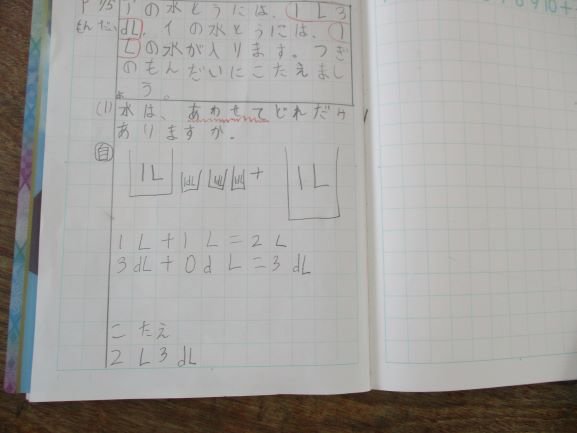 P95 アの水とうには、1L3
もんだい dL、イの水とうには、1
Lの水が入ります。つぎ
のもんだいにこたえまし
ょう。
(1) 水は、あわせてどれだけ
ありますか。
自
1L 1dL 1dL 1dL + 1L
1L+1L=2L
3dL+0dL=3dL
こたえ
2L3dL